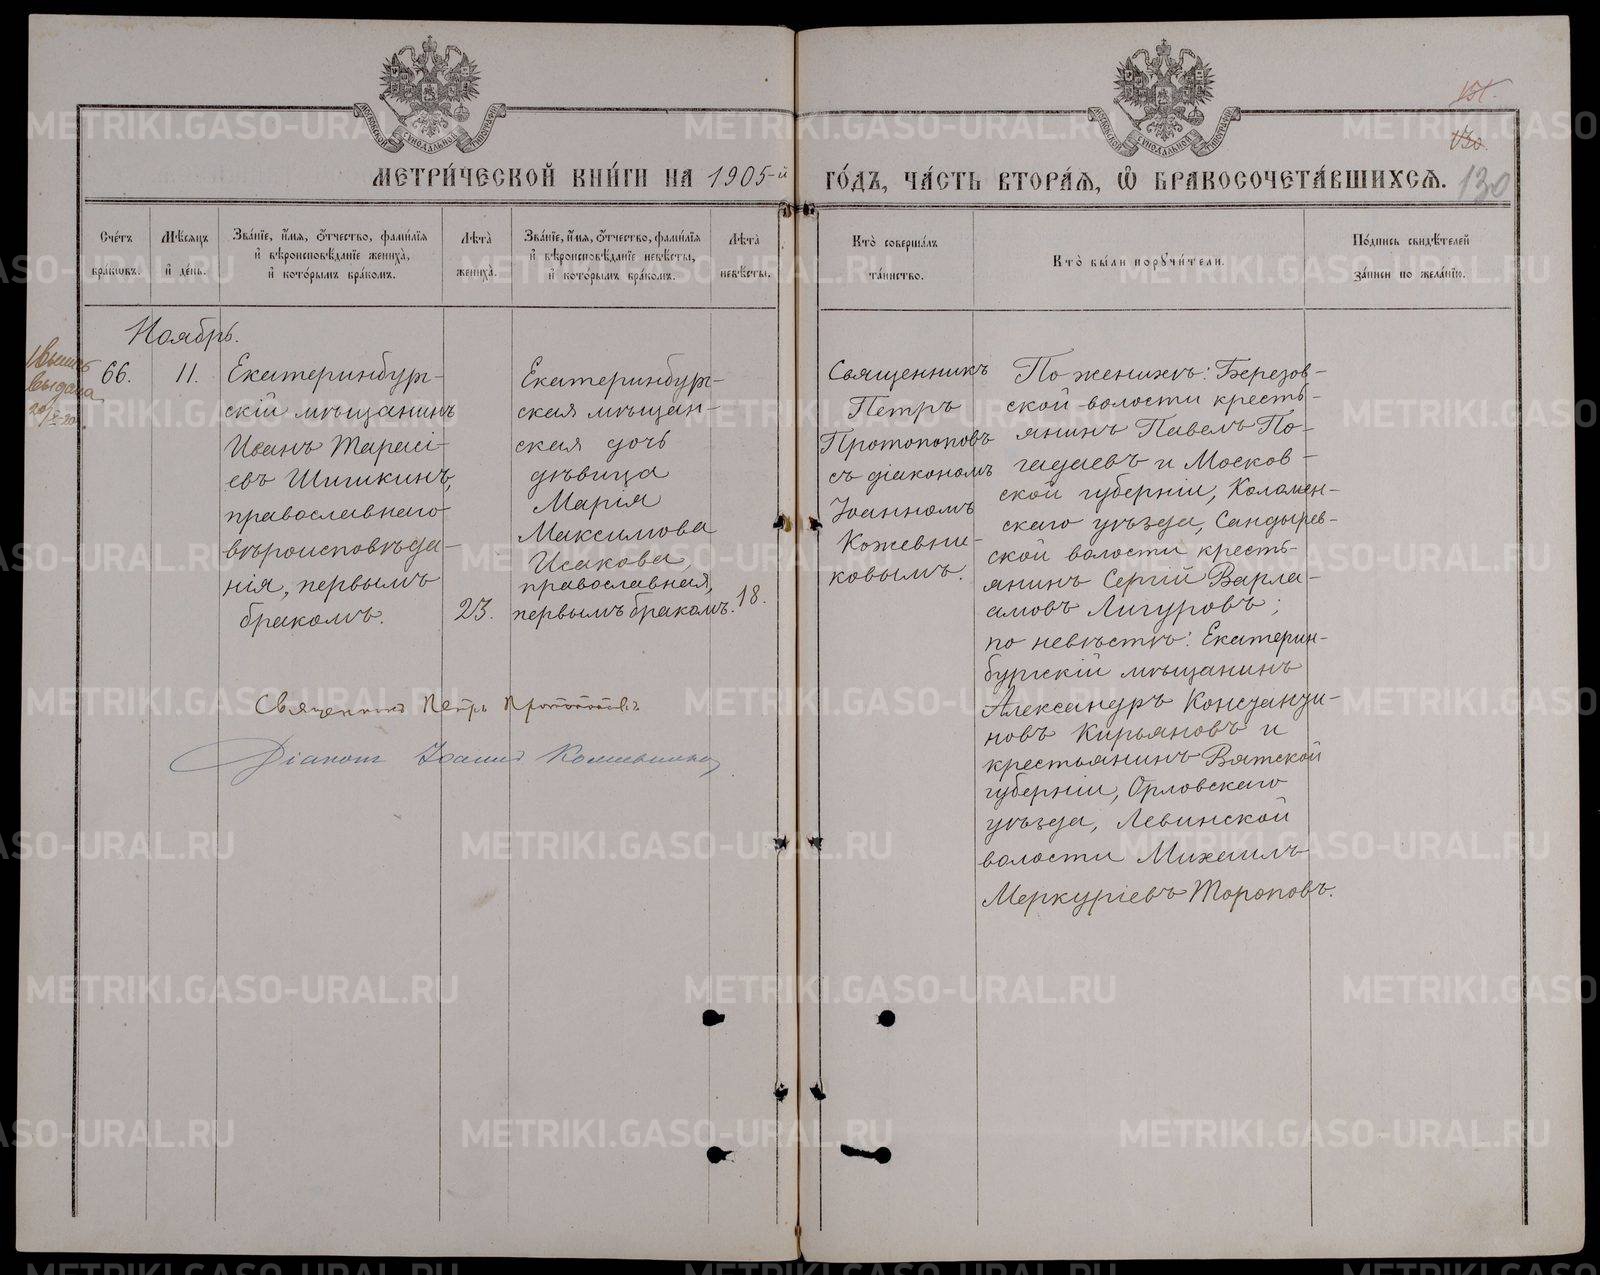 МЕТРИ́ЧЕСКОЙ КНИ́ГИ НА 1905-й ГО́ДЪ, ЧА́СТЬ ВТОРА́Я, Ѽ БРАКОСОЧЕТА́ВШИХСЯ.
151.
130.
130
МОСКОВСКОЙ СѴНОДАЛЬНОЙ ТИПОГРАФІИ
МОСКОВСКОЙ СѴНОДАЛЬНОЙ ТИПОГРАФІИ
Сче́тъ
бра́кѡвъ.
Мѣ́сяцъ
и҆ де́нь.
Зва́нїе, и҆́мя, ѻ҆́тчество, фами́лїя
и҆ вѣроисповѣ́данїе жениха̀,
и҆ кото́рымъ бра́комъ.
Лѣ́та
жениха̀.
Зва́нїе, и҆́мя, ѻ҆́тчество, фами́лїя
и҆ вѣроисповѣ́данїе невѣ́сты,
и҆ кото́рымъ бра́комъ.
Лѣ́та
невѣ́сты.
Кто̀ соверша́лъ
та́инство.
Кто̀ бы́ли поручи́тели.
По́дпись свидѣ́телей
за́писи по жела́нїю.
Ноябрь.
выдана
66.
11.
Екатеринбург-
скій мѣщанинъ
Иванъ Тарасі-
евъ Шишкинъ,
православнаго
вѣроисповѣда-
нія, первымъ
бракомъ.
23.
Екатеринбург-
ская мѣщан-
ская дочь
дѣвица
Марія
Максимова
Исакова,
православная,
первымъ бракомъ.
18.
Священникъ
Петръ
Протопоповъ
съ діакономъ
Іоанномъ
Кожевни-
ковымъ.
По женихѣ: Березов-
ской волости кресть-
янинъ Павелъ По-
гадаевъ и Москов-
ской губерніи, Коломен-
скаго уѣзда, Сандырев-
ской волости кресть-
янинъ Сергій Варла-
амовъ Лигуровъ;
по невѣстѣ: Екатерин-
бургскій мѣщанинъ
Александръ Константи-
новъ Кирьяновъ и
крестьянинъ Вятской
губерніи, Орловскаго
уѣзда, Левинской
волости Михаилъ
Меркуріевъ Тороповъ.
Священникъ Петръ Протопоповъ
Діаконъ Іоаннъ Кожевниковъ
METRIKI.GASO-URAL.RU